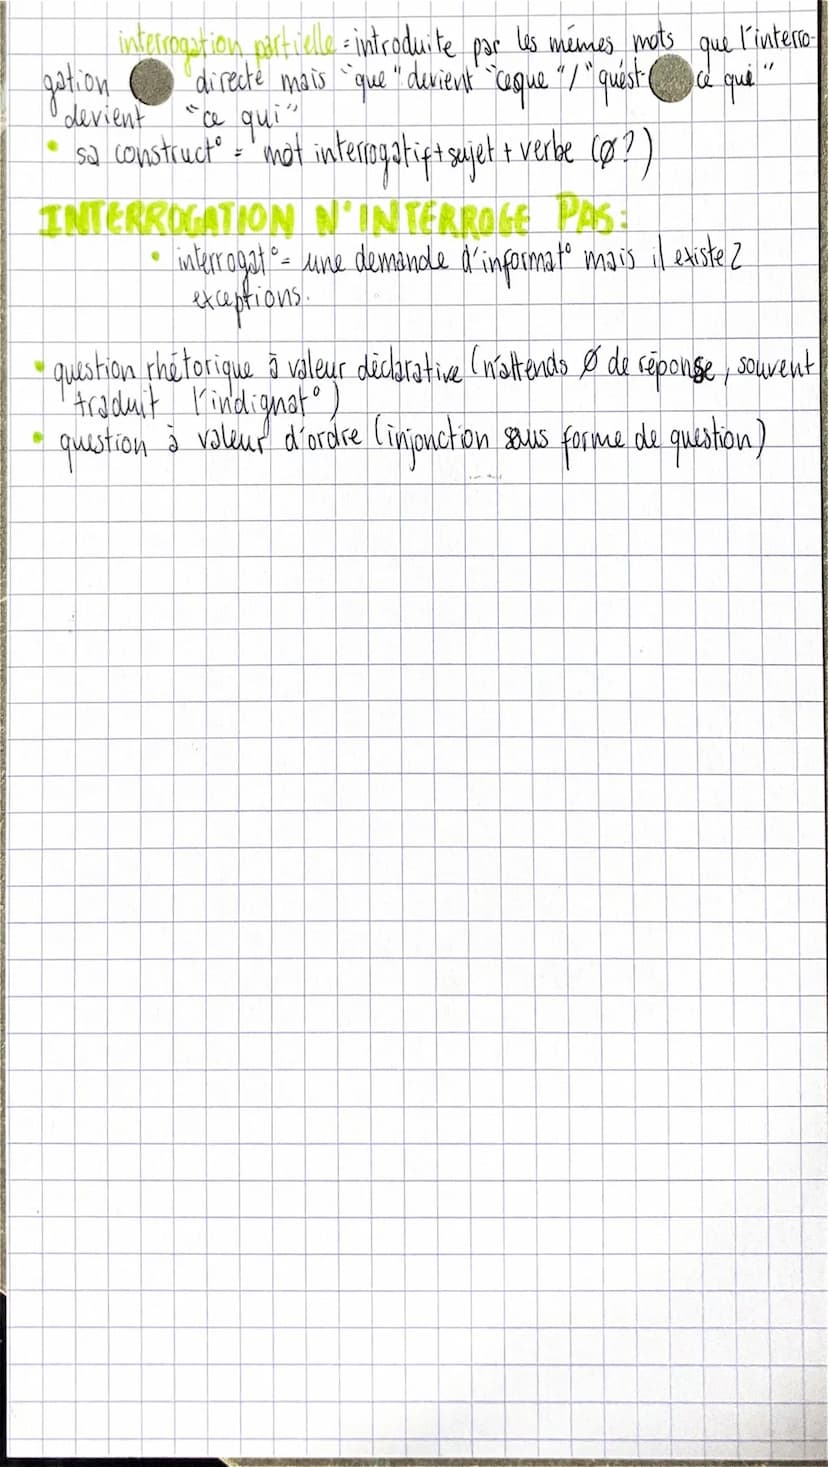 interrogation partielle = introduite par les mêmes mots que l'interro-
gation directe mais "que" devient "ceque"/"qu'est-ce qui"
devient "ce qui"
• sa construct° = mot interrogatif + sujet + verbe (Ø?)
INTERROGATION N'INTERROGE PAS:
• interrogat° = une demande d'informat° mais il existe 2
exceptions.
• question rhétorique à valeur déclarative (n'attends Ø de réponse, souvent
traduit l'indignat°)
• question à valeur d'ordre (injonction sous forme de question)